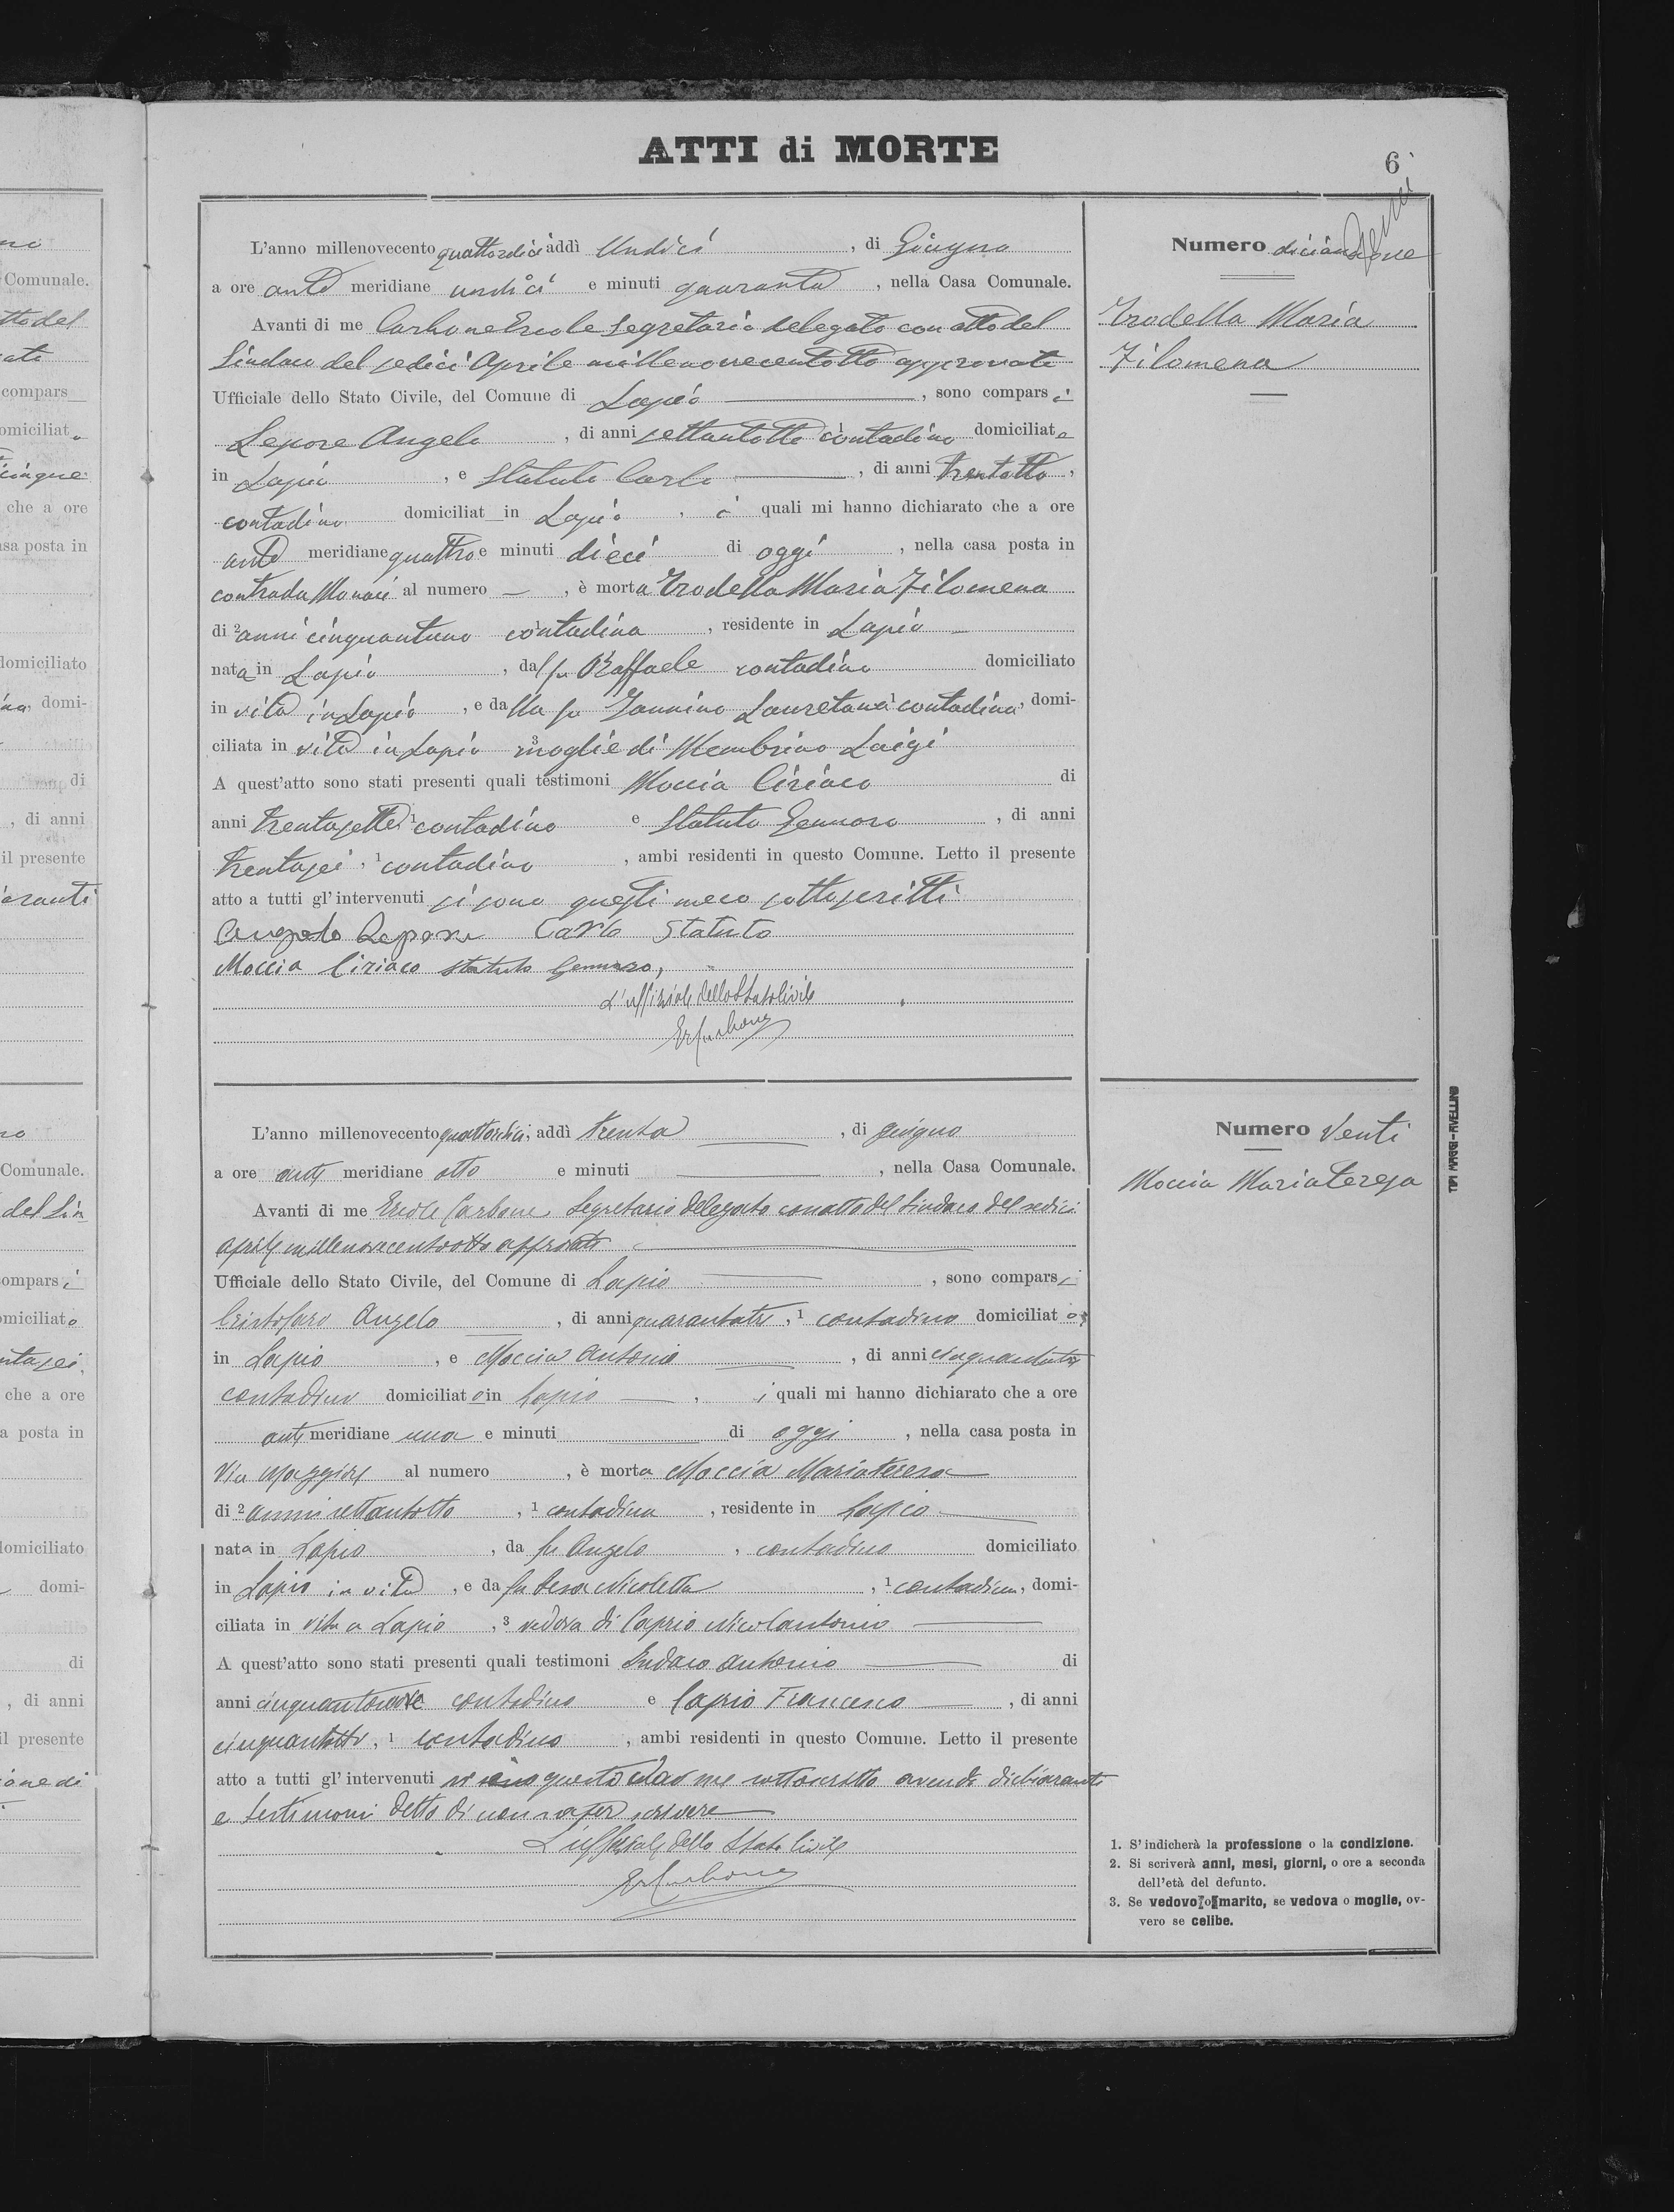 ATTI di MORTE
6
L'anno millenovecento quattordici addì Undici, di Giugno
a ore ante meridiane undici e minuti quaranta, nella Casa Comunale.
Avanti di me Carbone Ercole Segretario delegato con atto del
Sindaco del sedici Aprile millenovecentotto approvato
Ufficiale dello Stato Civile, del Comune di Lapio, sono compars i
Lepore Angelo, di anni settantotto contadino domiciliato
in Lapio, e Statuto Carlo, di anni trentotto,
contadino domiciliat in Lapio, i quali mi hanno dichiarato che a ore
ante meridiane quattro e minuti dieci di oggi, nella casa posta in
contrada Monaci al numero —, è morta Trodella Maria Filomena
di 2 anni cinquantuno contadina, residente in Lapio
nata in Lapio, dal fu Raffaele contadino domiciliato
in vita in Lapio, e dalla fu Iannino Lauretana 1 contadina, domi-
ciliata in vita in Lapio 3 moglie di Membrino Luigi
A quest'atto sono stati presenti quali testimoni Moccia Ciriaco di
anni trentasette 1 contadino e Statuto Gennaro, di anni
trentasei, 1 contadino, ambi residenti in questo Comune. Letto il presente
atto a tutti gl'intervenuti si sono questi meco sottoscritti
Angelo Lepore Carlo Statuto
Moccia Ciriaco Statuto Gennaro,
L'uffiziale dello Stato Civile
E Carbone
Numero diciannove
Trodella Maria
Filomena
L'anno millenovecento quattordici, addì trenta, di giugno
a ore ante meridiane otto e minuti —, nella Casa Comunale.
Avanti di me Ercole Carbone, Segretario delegato con atto del Sindaco del sedici
aprile millenovecentootto approvato
Ufficiale dello Stato Civile, del Comune di Lapio, sono compars i
Cristofaro Angelo, di anni quarantatre, 1 contadino domiciliato
in Lapio, e Moccia Antonio, di anni cinquantatre
contadino domiciliato in Lapio, i quali mi hanno dichiarato che a ore
ante meridiane una e minuti — di oggi, nella casa posta in
Via Maggiore al numero, è morta Moccia Mariateresa
di 2 anni settantotto, 1 contadina, residente in Lapio
nata in Lapio, da fu Angelo, contadino domiciliato
in Lapio in vita, e da fu Nicoletta, 1 contadina, domi-
ciliata in vita a Lapio, 3 vedova di Caprio Nicolantonio
A quest'atto sono stati presenti quali testimoni Antonio di
anni cinquantanove contadino e Caprio Francesco, di anni
cinquantotto, 1 contadino, ambi residenti in questo Comune. Letto il presente
atto a tutti gl'intervenuti si è questo da me sottoscritto avendo dichiaranti
e testimoni detto di non saper scrivere
L'uffiziale dello Stato Civile
E Carbone
Numero Venti
Moccia Mariateresa
1. S'indicherà la professione o la condizione.
2. Si scriverà anni, mesi, giorni, o ore a seconda
dell'età del defunto.
3. Se vedovo o marito, se vedova o moglie, ov-
vero se celibe.